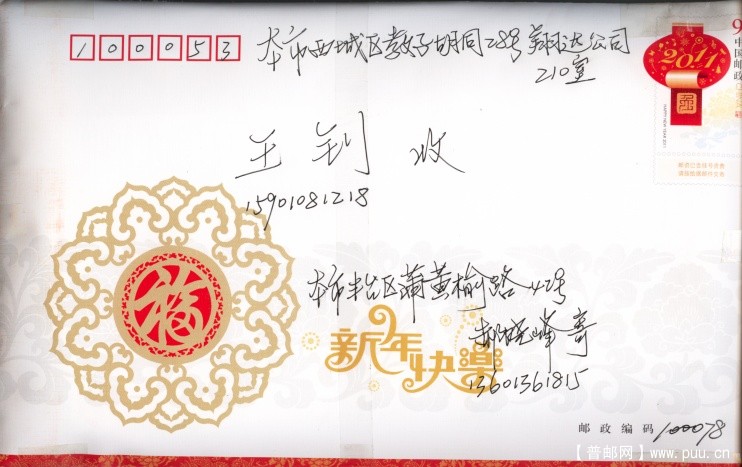 100053
本市西城区教子胡同28号翔达公司
210室
王钊 收
15901081218
本市丰台区蒲黄榆路42号
郝晓峰寄
13601361815
福
新年快樂
2011
HAPPY NEW YEAR 2011
中国邮政
邮政编码 100078
【普邮网】www.puu.cn